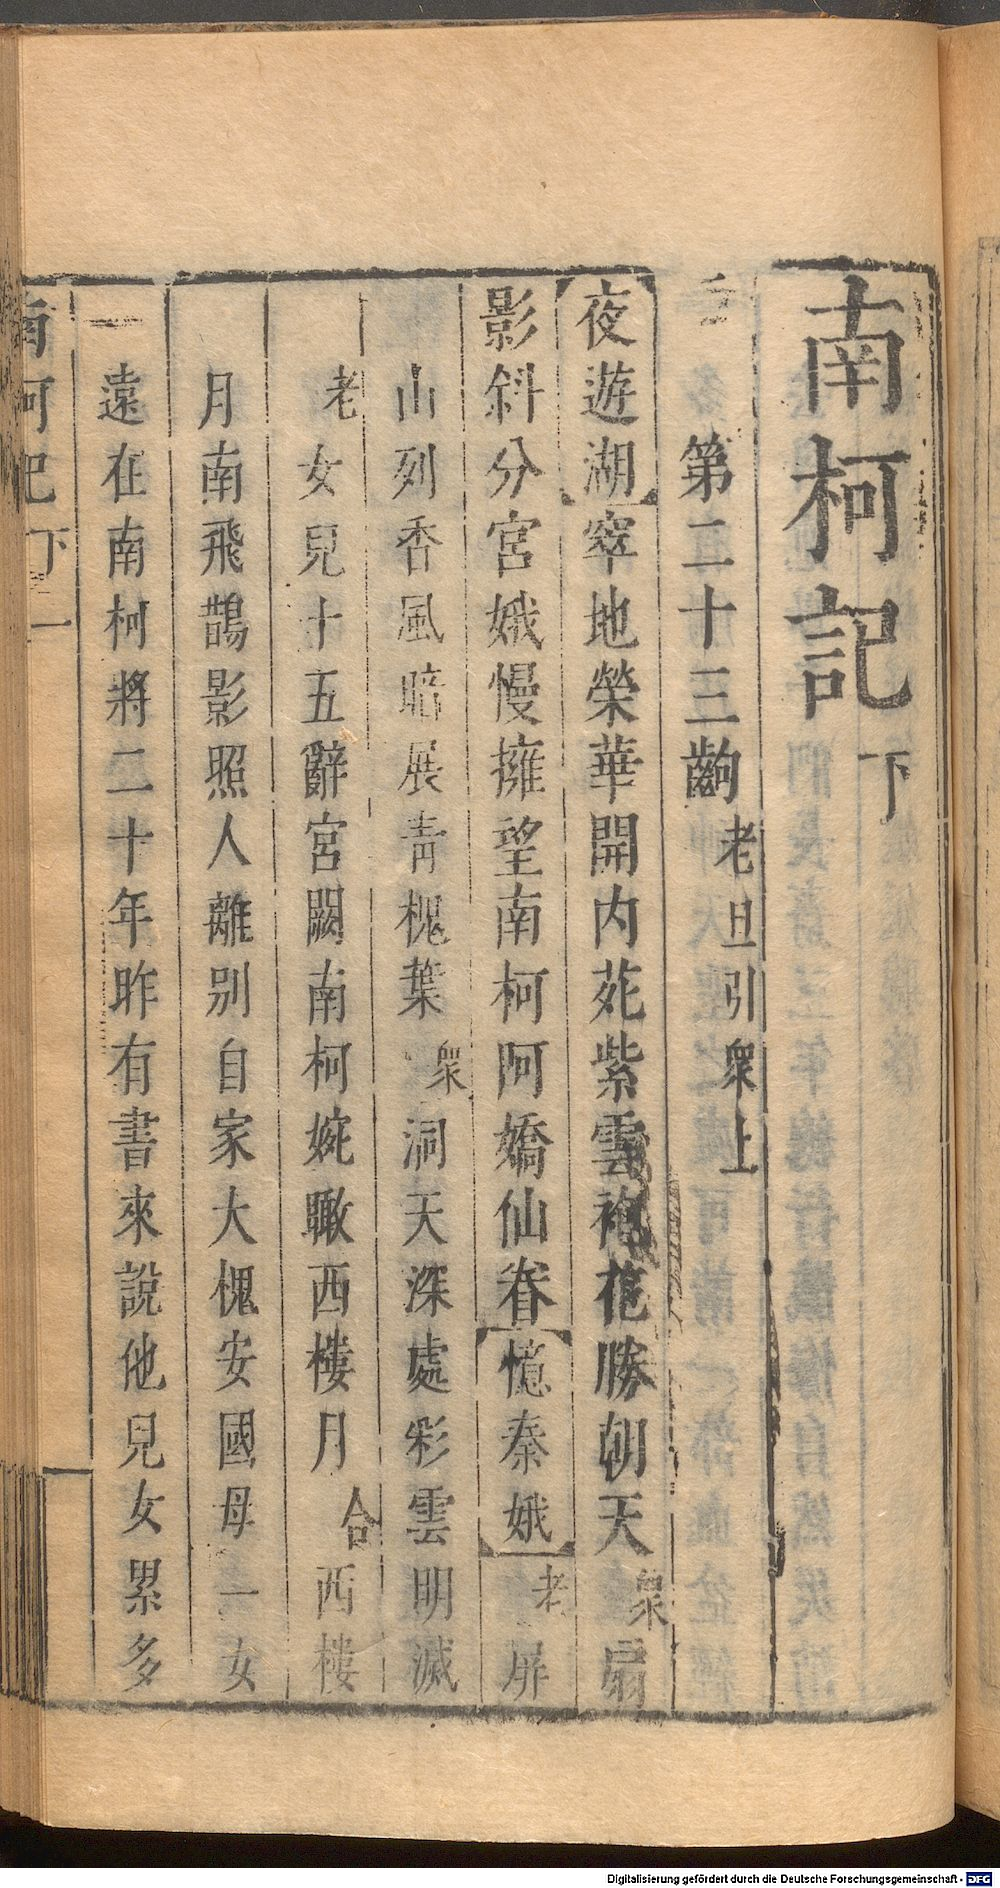 南柯記 下
第二十三齣 老旦引衆上
夜遊湖 窣地榮華開内苑紫雲袍花勝朝天 衆 扇
影斜分宮娥慢擁望南柯阿嬌仙眷 憶秦娥 老 屏
山列香風暗展青槐葉 衆 洞天深處彩雲明滅
老 女兒十五辭宮闕南柯婉瞰西樓月 合 西樓
月南飛鵲影照人離別自家大槐安國母一女
遠在南柯將二十年昨有書來說他兒女累多
南柯記 下 一
Digitalisierung gefördert durch die Deutsche Forschungsgemeinschaft - DFG